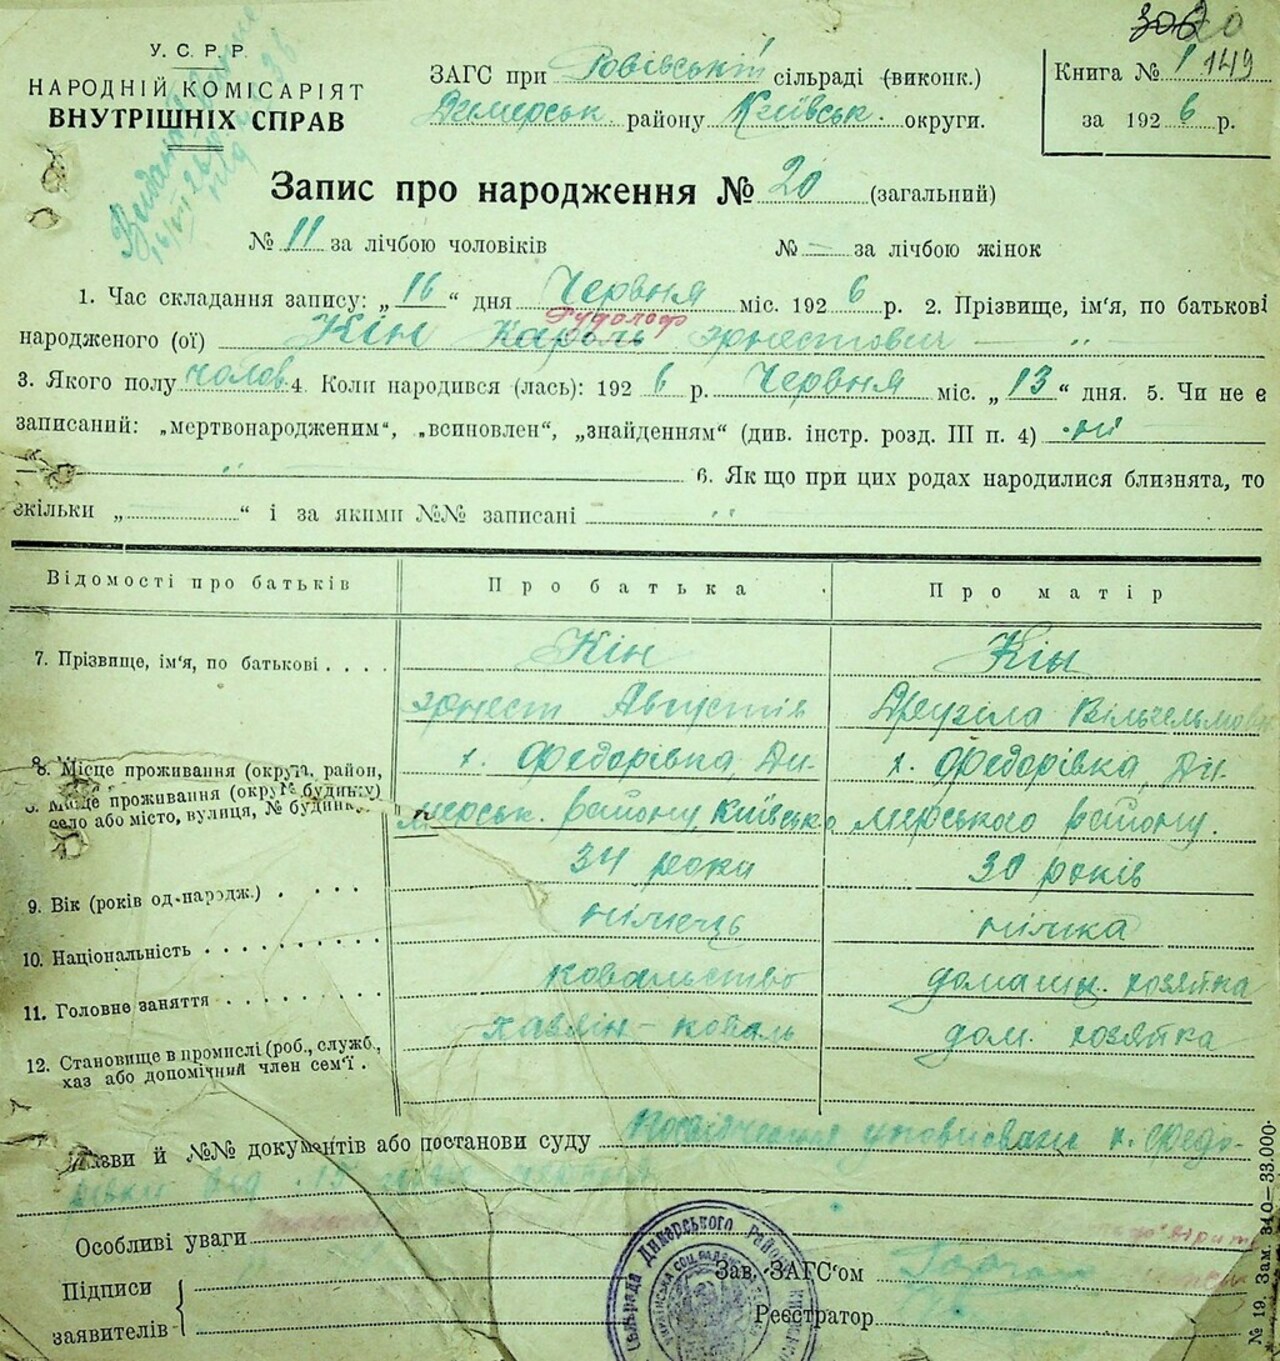 20
У. С. Р. Р.
НАРОДНІЙ КОМІСАРІЯТ
ВНУТРІШНІХ СПРАВ
ЗАГС при Ровівській сільраді (виконк.)
Димерськ. району Київськ. округи.
Книга № 1 149
за 1926 р.
Запис про народження № 20 (загальний)
№ 11 за лічбою чоловіків № — за лічбою жінок
1. Час складання запису: „16“ дня Червня міс. 1926 р. 2. Прізвище, ім'я, по батькові
Рудольф
народженого (ої) Кін Кароль Эрнестович
3. Якого полу чолов. 4. Коли народився (лась): 1926 р. Червня міс. „13“ дня. 5. Чи не є
записаний: „мертвонародженим“, „всиновлен“, „знайденням“ (див. інстр. розд. III п. 4) ні
6. Як що при цих родах народилися близнята, то
скільки „ “ і за якими №№ записані
Відомості про батьків Про батька Про матір
7. Прізвище, ім'я, по батькові . . . . Кін Кін
Эрнест Августів Вільгельмовн
8. Місце проживання (округа, район, х. Федорівка, Ди- х. Федорівка, Ди-
8. Місце проживання (округа № будинку)
село або місто, вулиця, № будинку мерськ. району, Київсько мерського району.
9. Вік (років од народж.) . . . . 34 роки 30 років
10. Національність . . . . . . . . . . німець німка
11. Головне заняття . . . . . . . . . ковальство домашн. хозяйка
12. Становище в промислі (роб., служб., хазяїн - коваль дом. хозяйка
хаз або допомічний член сем'ї .
Назви й №№ документів або постанови суду Посвідчення уповноваж х. Федо-
рівки від 15 червня
Особливі уваги
Підписи
заявителів
Зав. ЗАГС'ом
Реєстратор
№ 19. Зам. 340—33.000·